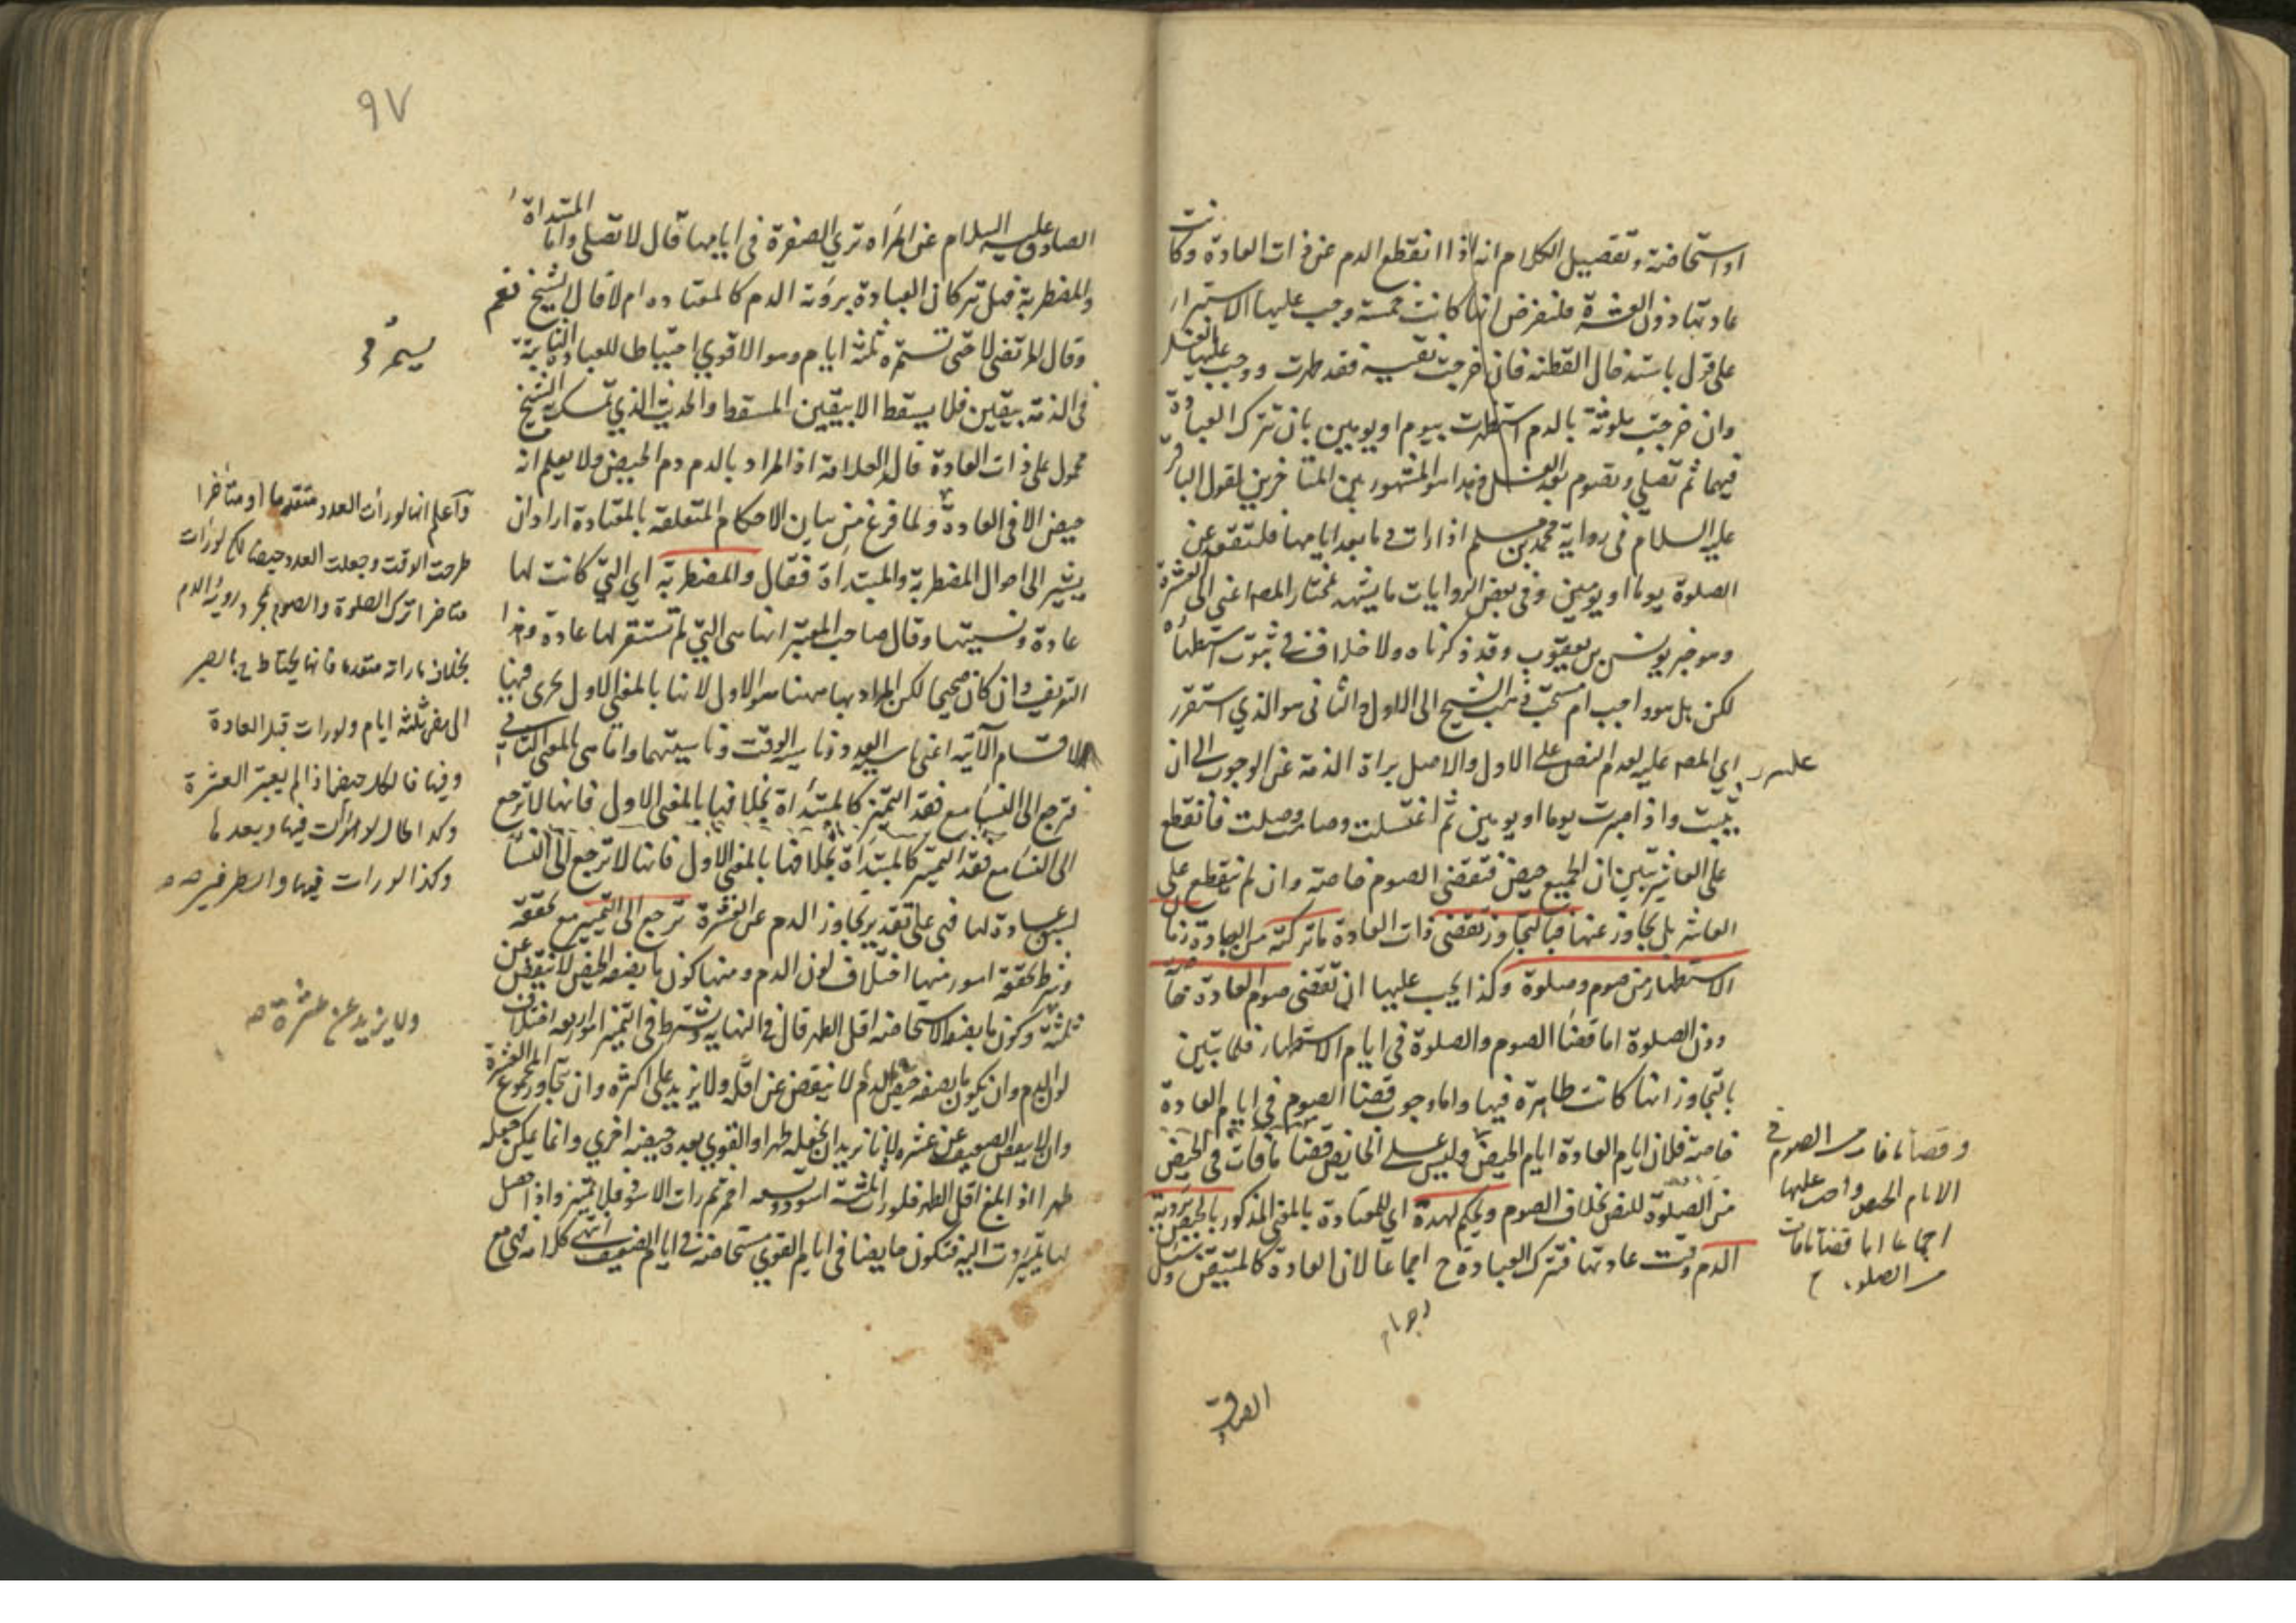 او استحاضة وتفصيل الكلام انه اذا انقطع الدم عن ذات العادة وكانت
عادتها دون العشرة فلنفرض انها كانت خمسة وجب عليها الاستبراء
على قول باستدخال القطنه فان خرجت نقية فقد طهرت ووجب عليها الغسل
وان خرجت ملوثة بالدم استظهرت بيوم او يومين بان تترك العبادة
فيهما ثم تصلي وتصوم بعد الغسل وهذا هو المشهور بين المتاخرين لقول الباقر
عليه السلام فى رواية محمد بن مسلم اذا رات دما بعد ايامها فلتقعد عن
الصلوة يوما او يومين وفى بعض الروايات ما يشهد لمختار المصه اعنى الى العشرة
وهو خبر يونس بن يعقوب وقد ذكرناه ولا خلاف فى ثبوت استظهاره
لكن بل هو واجب ام مستحب ذهب الشيخ الى الاول والثانى هو الذي استقر
راي المصه عليه لعدم النص على الاول والاصل براة الذمة عن الوجوب الى ان
يثبت واذا صبرت يوما او يومين ثم اغتسلت وصامت وصلت فانقطع
على العاشر تبين ان الجميع حيض فتقضى الصوم خاصة وان لم ينقطع على
العاشر بل تجاوز عنها فبالتجاوز تقضى ذات العادة ما تركته من العبادة زمان
الاستظهار من صوم وصلوة وكذا يجب عليها ان تقضى صوم العادة خاصة
دون الصلوة اما قضا الصوم والصلوة فى ايام الاستظهار فلما تبين
بالتجاوز انها كانت طاهرة فيها واما وجوب قضا الصوم فى ايام العادة
خاصة فلان ايام العادة ايام الحيض وليس على الحائض قضا ما فات فى الحيض
من الصلوة للنص بخلاف الصوم ويحكم لهذه اي للمعتادة بالمعنى المذكور بالحيض برؤية
الدم وقت عادتها فتترك العبادة ح اجماعا لان العادة كالمتيقن وسئل
وقضا ما فات من الصوم فى
الايام الحيض واجب عليها
اجماعا اما قضا ما فات
من الصلوة
الصادق
٩٧
الصادق عليه السلام عن المراه تري الصفرة فى ايامها قال لا تصلى واما المبتداة
والمضطربة فهل تتركان العبادة برؤية الدم كالمعتاده ام لا قال الشيخ نعم
وقال المرتضى لا حتى تستمره ثلثة ايام وهو الاقوي احتياطا للعبادة الثابتة
فى الذمة بيقين فلا يسقط الا بيقين المسقط والحديث الذي تمسك به الشيخ
محمول على ذات العادة قال العلامة اذ المراد بالدم دم الحيض ولا يعلم انه
حيض الا فى العادة ولما فرغ من بيان الاحكام المتعلقة بالمعتادة اراد ان
يشير الى احوال المضطربة والمبتداة فقال والمضطربة اي التى كانت لها
عادة ونسيتها وقال صاحب المعتبر انها هى التى لم تستقر لها عادة وهذا
التعريف وان كان صحيحا لكن المراد بها ههنا هو الاول لانها بالمعنى الاول تجرى فيها
الاقسام الآتيه اعنى ناسية العدد وناسية الوقت وناسيتهما واما هى بالمعنى الثانى
فترجع الى النسا مع فقد التميز كالمبتداة بخلافها بالمعنى الاول فانها لا ترجع
الى النسا مع فقد التميز كالمبتداة بخلافها بالمعنى الاول فانها لا ترجع الى النسا
لسبق عادة لها فهى على تقدير تجاوز الدم عن العشرة ترجع الى التميز مع تحققه
وشرط تحققه امور منها اختلاف لون الدم ومنها كون ما بصفة الحيض لا ينقص عن
ثلثة وكون ما بصفة الاستحاضة اقل الطهر قال فى النهاية وشترط فى التميز امور اربعه اختلاف
لون الدم وان يكون ما بصفة حيض الدم لا ينقص عن اقله ولا يزيد على اكثره وان يتجاوز المجموع العشرة
وان لا ينقص الضعيف عن عشره لانا نريد ان نجعله طهرا والقوي بعده حيضة اخري وانما يمكن جعله
طهرا اذا بلغ اقل الطهر فلو رات ثلثة اسود وتسعه احمر ثم رات الاسود فلا تميز واذا حصل
لها تميز ردت اليه فتكون حايضا فى ايام القوي مستحاضة فى ايام الضعيف انتهى كلامه فهى مع
واعلم انها لو رات العدد متقدما او متاخرا
طرحت الوقت وجعلت العدد حيضا لكن لو رات
متاخرا تركت الصلوة والصوم بمجرد روية الدم
بخلاف ما راته متقدما فانها تحتاط ح بالصبر
الى مضى ثلثة ايام ولو رات قبل العادة
وفيها فالكل حيض اذا لم يتجاوز العشرة
وكذا الحال لو رات فيها وبعدها
وكذا لو رات فيها والطرفين صه
ولا يزيد عن عشرة صه